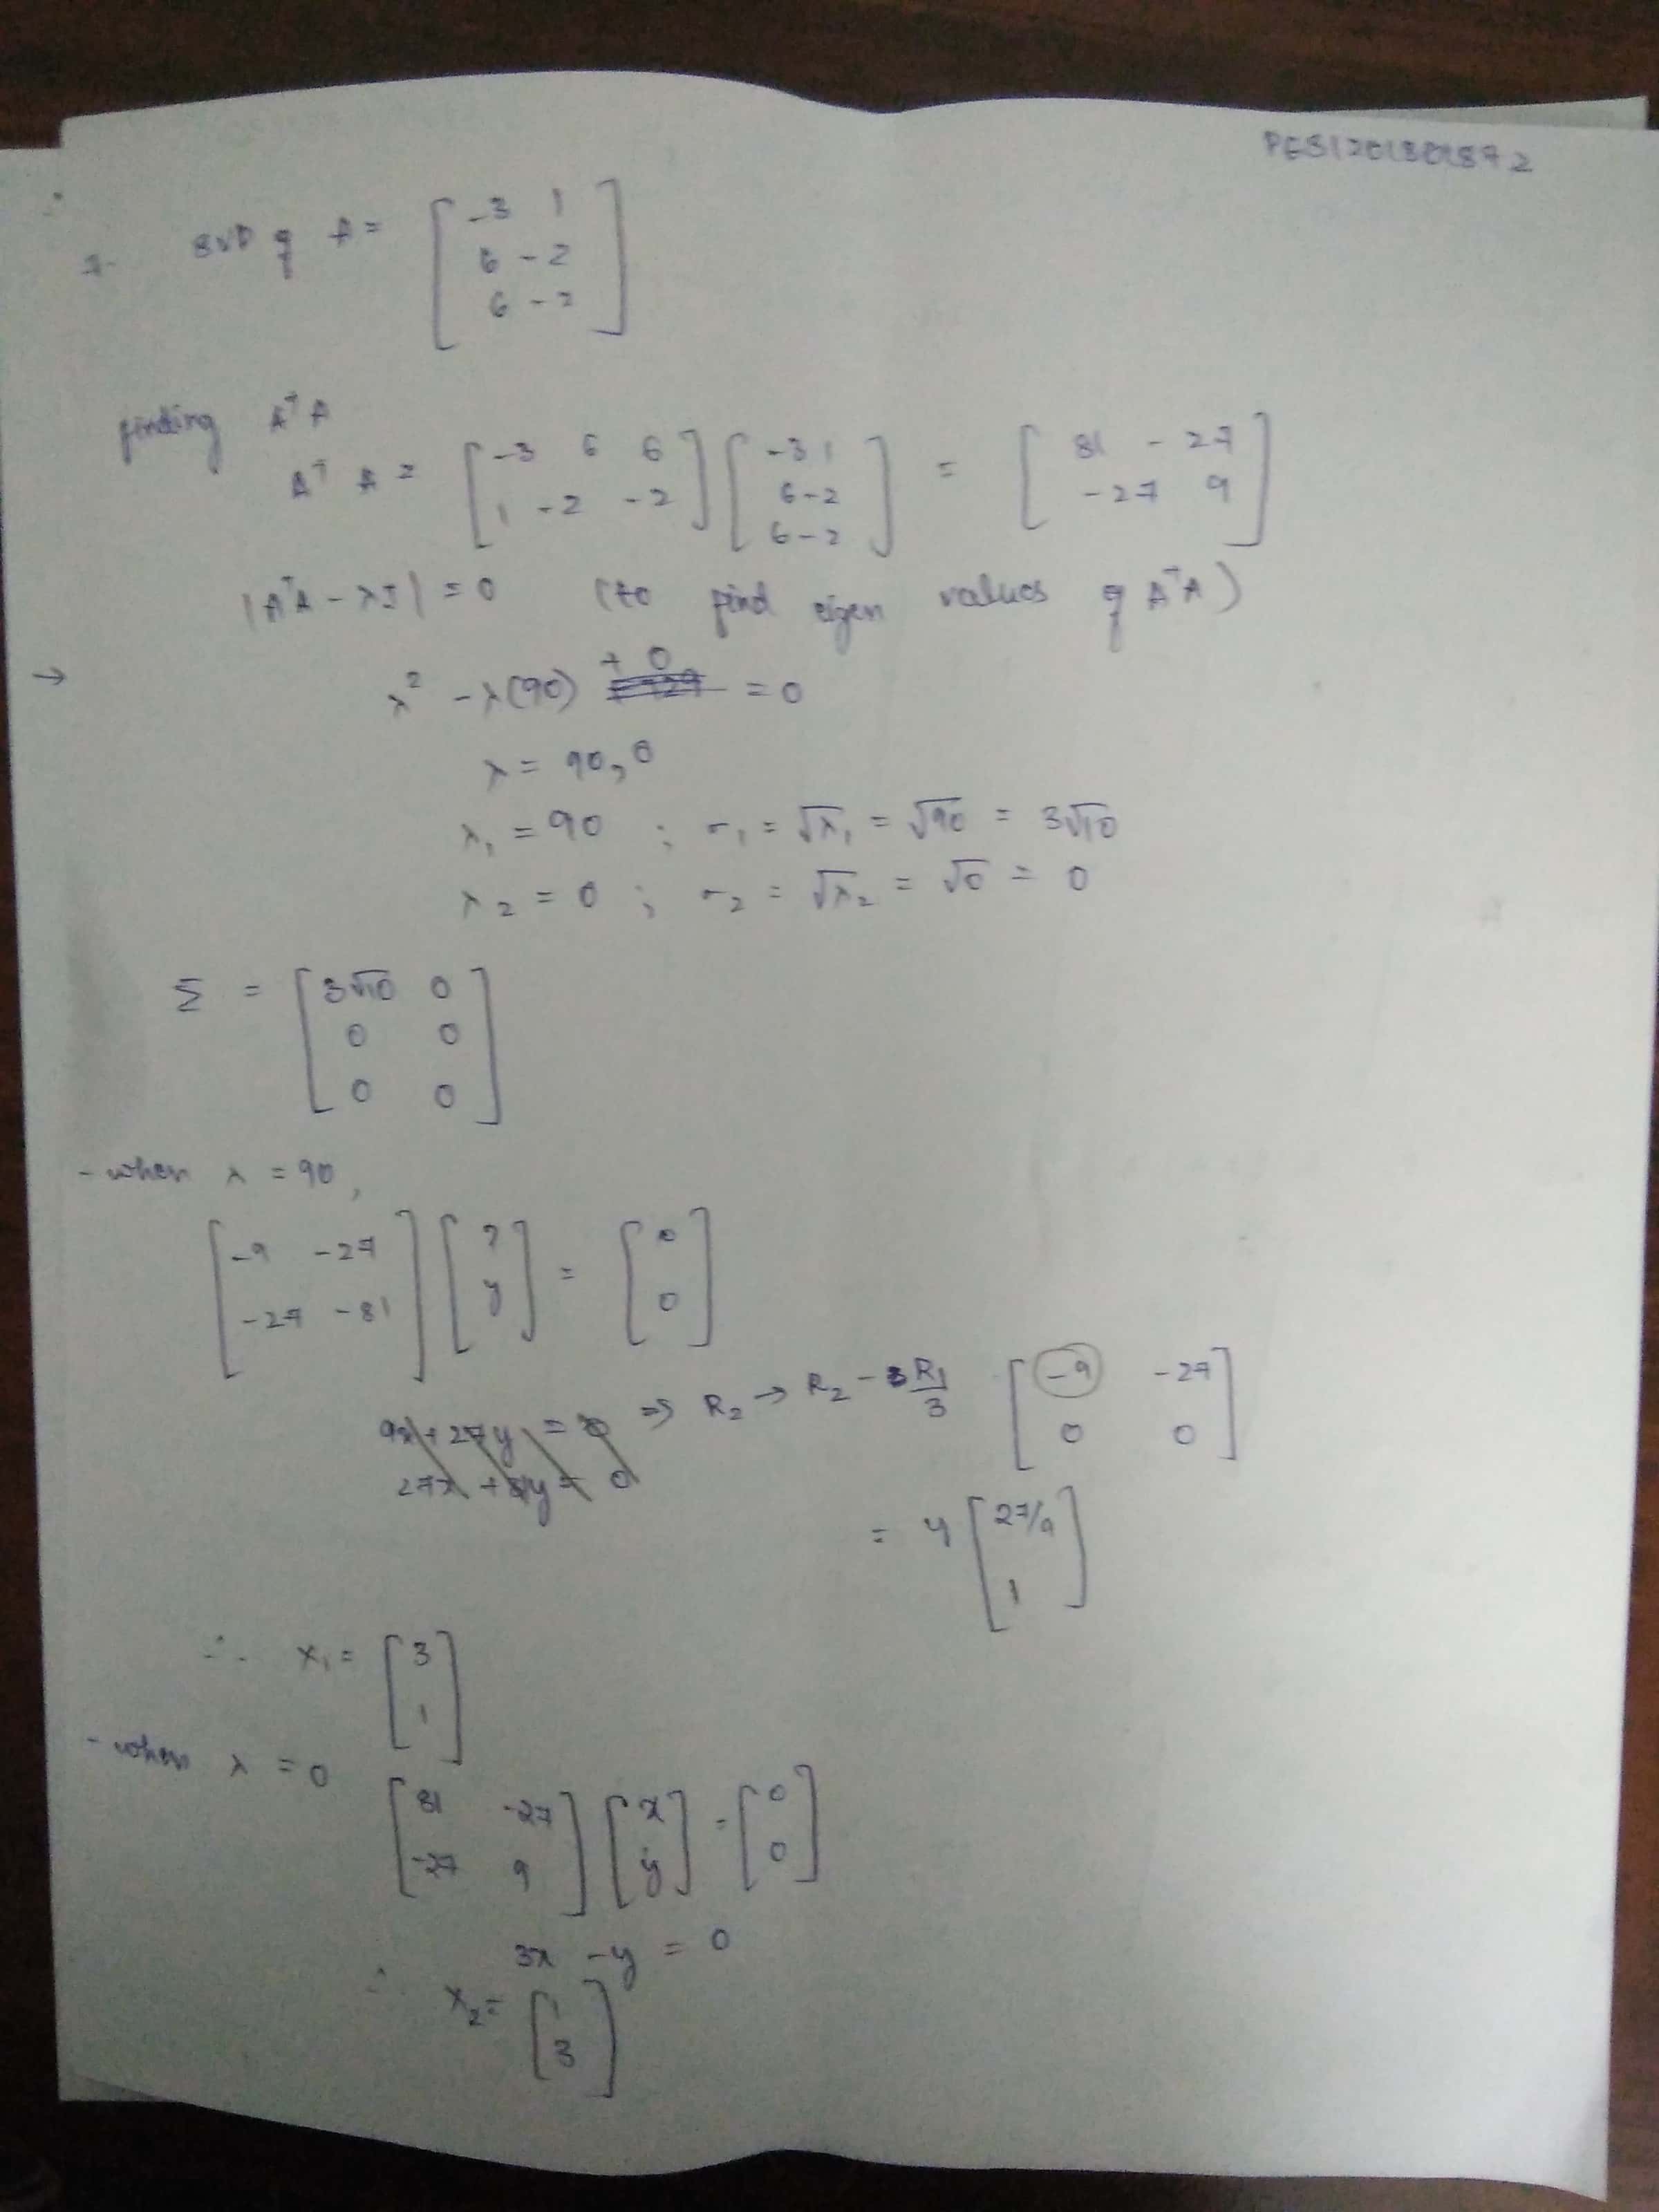 PES1201801872
7. SVD of A = [ -3 1 ; 6 -2 ; 6 -2 ]
finding AᵀA
AᵀA = [ -3 6 6 ; 1 -2 -2 ] [ -3 1 ; 6 -2 ; 6 -2 ] = [ 81 -27 ; -27 9 ]
|AᵀA - λI| = 0 (to find eigen values of AᵀA)
→ λ² - λ(90) + 0 = 0
λ = 90, 0
λ₁ = 90 ; σ₁ = √λ₁ = √90 = 3√10
λ₂ = 0 ; σ₂ = √λ₂ = √0 = 0
Σ = [ 3√10 0 ; 0 0 ; 0 0 ]
- when λ = 90,
[ -9 -27 ; -27 -81 ] [ x ; y ] = [ 0 ; 0 ]
9x + 27y = 0 ⇒ R₂ → R₂ - 3R₁/3 [ -9 -27 ; 0 0 ]
27x + 81y = 0
= y [ 27/9 ; 1 ]
∴ x₁ = [ 3 ; 1 ]
- when λ = 0
[ 81 -27 ; -27 9 ] [ x ; y ] = [ 0 ; 0 ]
3x - y = 0
∴ x₂ = [ 1 ; 3 ]